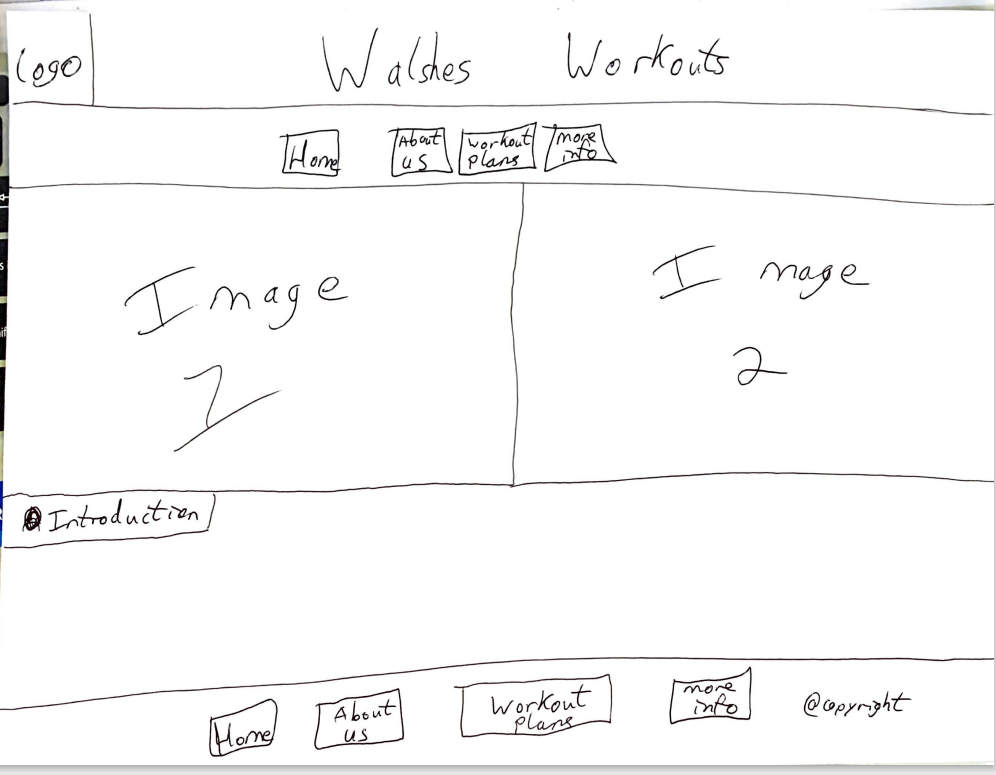 Logo
Walshes Workouts
Home
About
us
workout
plans
more
info
Image
1
Image
2
Introduction
Home
About
us
Workout
plans
more
info
@copyright